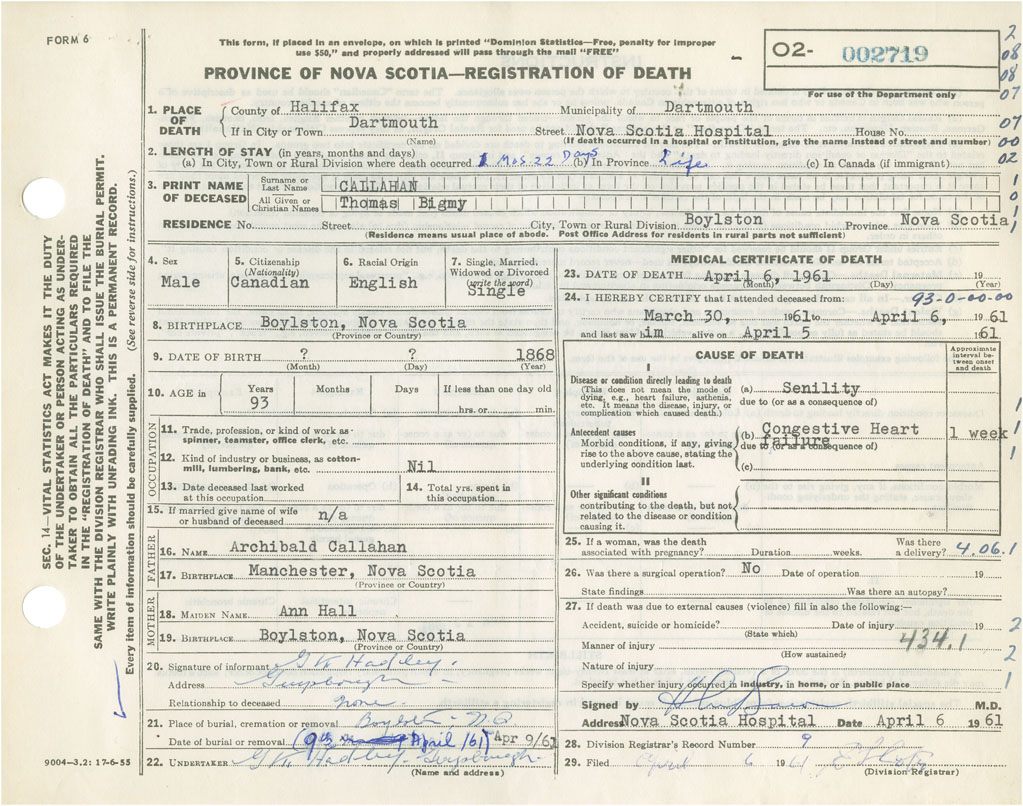 FORM 6
This form, if placed in an envelope, on which is printed "Dominion Statistics—Free, penalty for improper
use $50," and properly addressed will pass through the mail "FREE"
PROVINCE OF NOVA SCOTIA—REGISTRATION OF DEATH
02- 002719
For use of the Department only
2
08
08
07
07
00
02
1
0
1
1
1. PLACE OF DEATH
County of Halifax Municipality of Dartmouth
If in City or Town Dartmouth Street Nova Scotia Hospital House No.
(Name) (If death occurred in a hospital or institution, give the name instead of street and number)
2. LENGTH OF STAY (in years, months and days)
(a) In City, Town or Rural Division where death occurred 1 Mos 22 Days (b) In Province Life (c) In Canada (if immigrant)
3. PRINT NAME OF DECEASED
Surname or Last Name CALLAHAN
All Given or Christian Names Thomas Bigmy
RESIDENCE No. Street City, Town or Rural Division Boylston Province Nova Scotia
(Residence means usual place of abode. Post Office Address for residents in rural parts not sufficient)
4. Sex
Male
5. Citizenship
(Nationality)
Canadian
6. Racial Origin
English
7. Single, Married,
Widowed or Divorced
(write the word)
Single
8. BIRTHPLACE Boylston, Nova Scotia
(Province or Country)
9. DATE OF BIRTH ? ? 1868
(Month) (Day) (Year)
10. AGE in
Years
93
Months
Days
If less than one day old
hrs. or min.
OCCUPATION
11. Trade, profession, or kind of work as-
spinner, teamster, office clerk, etc.
12. Kind of industry or business, as cotton-
mill, lumbering, bank, etc. Nil
13. Date deceased last worked
at this occupation
14. Total yrs. spent in
this occupation
15. If married give name of wife
or husband of deceased n/a
FATHER
16. NAME Archibald Callahan
17. BIRTHPLACE Manchester, Nova Scotia
(Province or Country)
MOTHER
18. MAIDEN NAME Ann Hall
19. BIRTHPLACE Boylston, Nova Scotia
(Province or Country)
20. Signature of informant G K Hadley.
Address Guysborough
Relationship to deceased none.
21. Place of burial, cremation or removal Boylston
Date of burial or removal (9th April /61) Apr 9/61
22. UNDERTAKER G K Hadley. Guysborough.
(Name and address)
9004—3.2: 17-6-55
MEDICAL CERTIFICATE OF DEATH
23. DATE OF DEATH April 6, 1961 19
(Month) (Day) (Year)
24. I HEREBY CERTIFY that I attended deceased from: 93-0-00-00
March 30, 1961 to April 6, 1961
and last saw him alive on April 5 1961
CAUSE OF DEATH
Approximate
interval be-
tween onset
and death
I
Disease or condition directly leading to death
(This does not mean the mode of
dying, e.g., heart failure, asthenia,
etc. It means the disease, injury, or
complication which caused death.)
(a) Senility
due to (or as a consequence of)
Antecedent causes
Morbid conditions, if any, giving
rise to the above cause, stating the
underlying condition last.
(b) Congestive Heart failure 1 week
due to (or as a consequence of)
(c)
1
1
1
II
Other significant conditions
contributing to the death, but not
related to the disease or condition
causing it.
25. If a woman, was the death
associated with pregnancy? Duration weeks. Was there
a delivery? 4.06.1
26. Was there a surgical operation? No Date of operation 19
State findings Was there an autopsy?
27. If death was due to external causes (violence) fill in also the following:—
Accident, suicide or homicide? Date of injury 19 2
(State which)
Manner of injury 434.1
(How sustained)
2
Nature of injury
Specify whether injury occurred in industry, in home, or in public place 1
Signed by M.D.
Address Nova Scotia Hospital Date April 6 1961
28. Division Registrar's Record Number 9
29. Filed April 6 1961
(Division Registrar)
SEC. 14—VITAL STATISTICS ACT MAKES IT THE DUTY
OF THE UNDERTAKER OR PERSON ACTING AS UNDER-
TAKER TO OBTAIN ALL THE PARTICULARS REQUIRED
IN THE "REGISTRATION OF DEATH" AND TO FILE THE
SAME WITH THE DIVISION REGISTRAR WHO SHALL ISSUE THE BURIAL PERMIT.
WRITE PLAINLY WITH UNFADING INK. THIS IS A PERMANENT RECORD.
Every item of information should be carefully supplied. (See reverse side for instructions.)